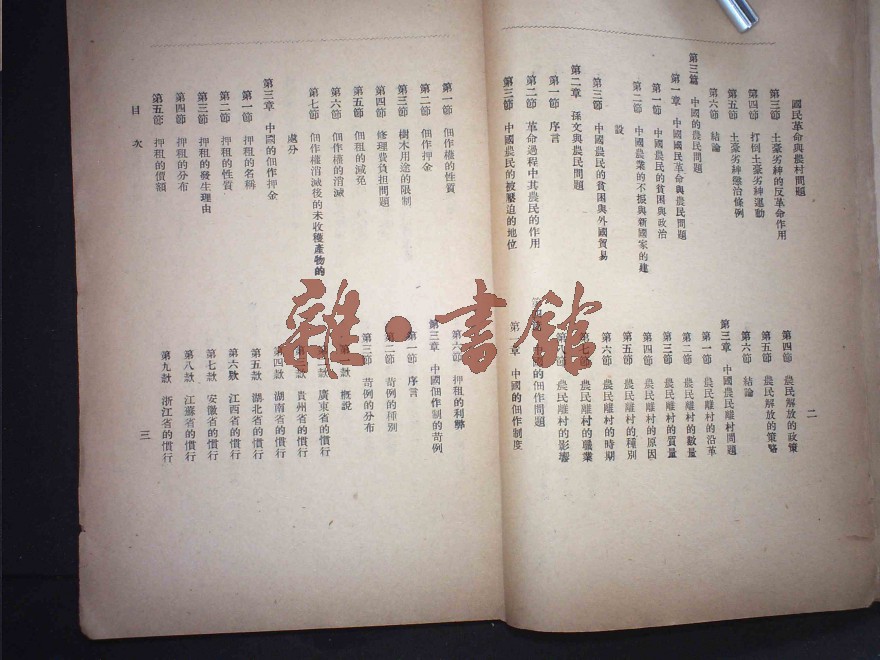 國民革命與農村問題
第三節 土豪劣紳的反革命作用
第四節 打倒土豪劣紳運動
第五節 土豪劣紳懲治條例
第六節 結論
第三篇 中國的農民問題
第一章 中國國民革命與農民問題
第一節 中國農民的貧困與政治
第二節 中國農業的不振與新國家的建
設
第三節 中國農民的貧困與外國貿易
第二章 孫文與農民問題
第一節 序言
第二節 革命過程中其農民的作用
第三節 中國農民的被壓迫的地位
二
第四節 農民解放的政策
第五節 農民解放的策略
第六節 結論
第三章 中國農民離村問題
第一節 農民離村的沿革
第二節 農民離村的數量
第三節 農民離村的質量
第四節 農民離村的原因
第五節 農民離村的種別
第六節 農民離村的時期
第七節 農民離村的職業
第八節 農民離村的影響
的佃作問題
第一章 中國的佃作制度
第一節 佃作權的性質
第二節 佃作押金
第三節 樹木用途的限制
第四節 修理費負担問題
第五節 佃租的減免
第六節 佃作權的消滅
第七節 佃作權消滅後的未收穫產物的
處分
第三章 中國的佃作押金
第一節 押租的名稱
第二節 押租的性質
第三節 押租的發生理由
第四節 押租的分布
第五節 押租的價額
目次
第六節 押租的利弊
第三章 中國佃作制的苛例
第一節 序言
第二節 苛例的種別
第三節 苛例的分布
概說
廣東省的慣行
貴州省的慣行
第四款 湖南省的慣行
第五款 湖北省的慣行
第六款 江西省的慣行
第七款 安徽省的慣行
第八款 江蘇省的慣行
第九款 浙江省的慣行
三
雜·書館